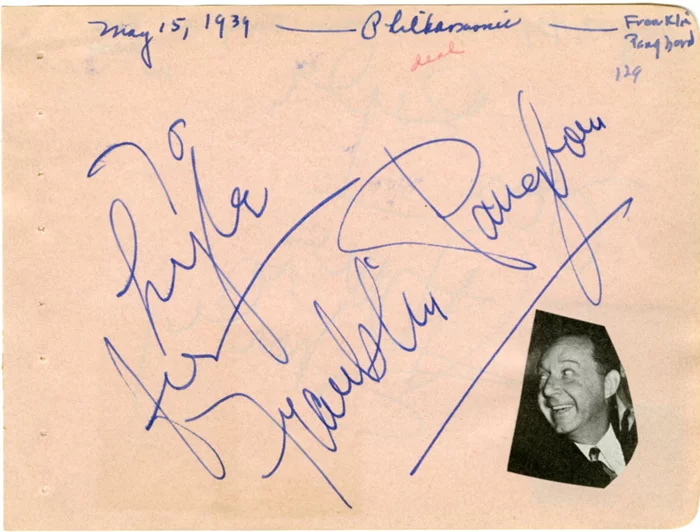 May 15, 1939 — Philharmonic — Franklin
Pangborn
129
deal
To
Lyle
from
Franklin Pangborn